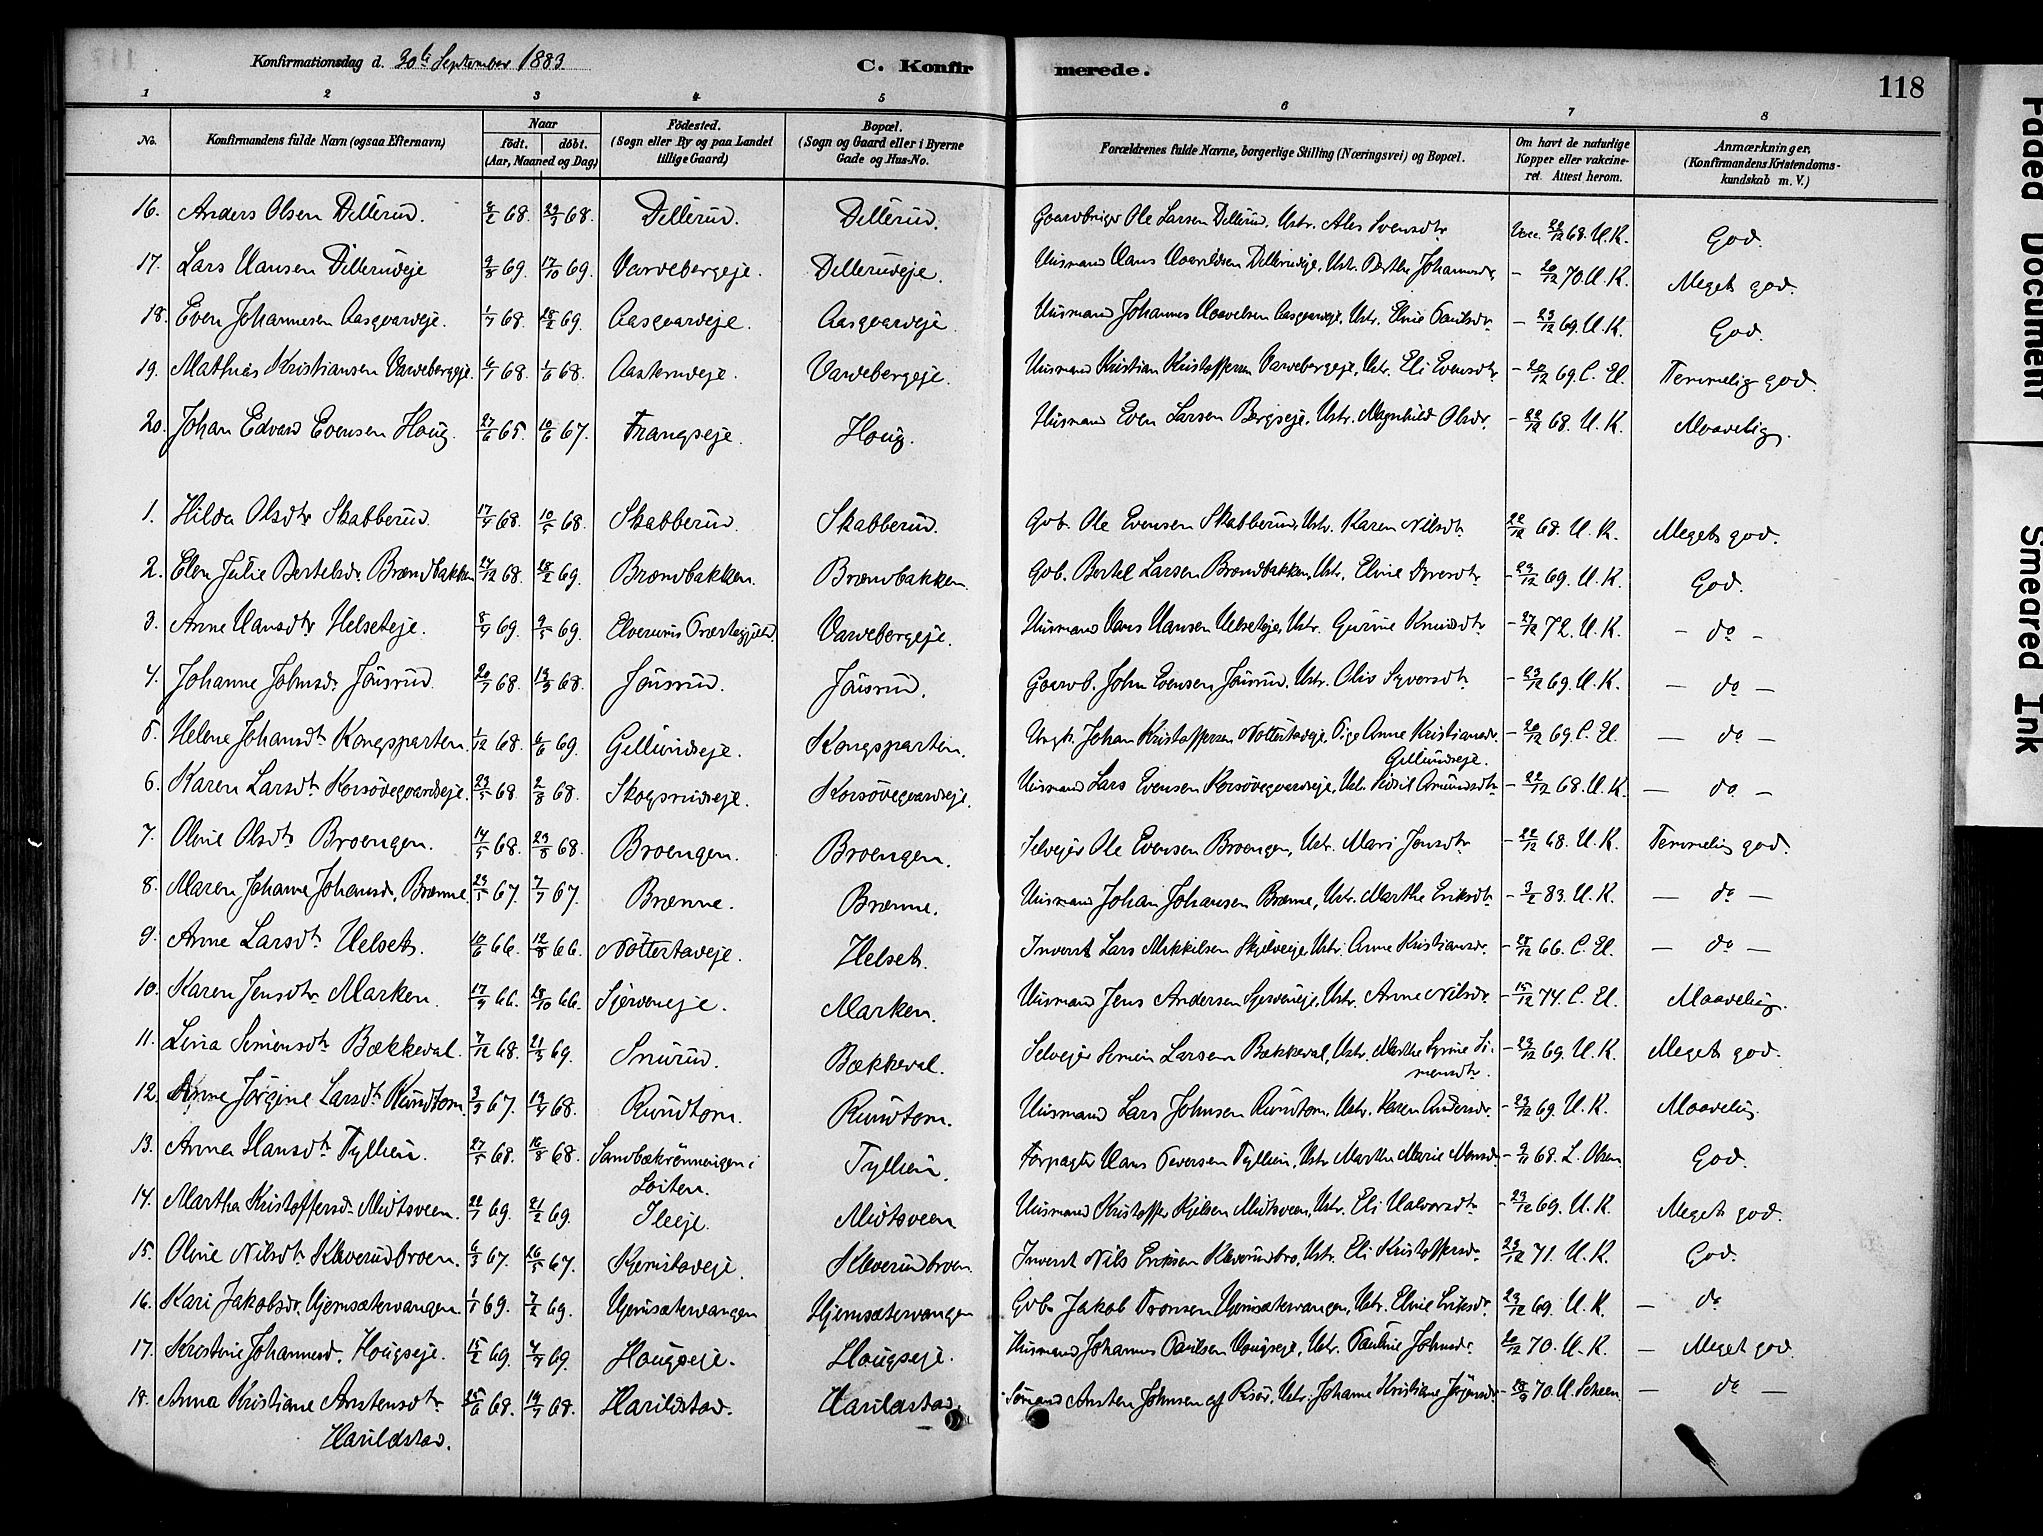 Konfirmationsdag d. 30te September 1883
C. Konfirmerede.
118
1 2 3 4 5 6 7 8
No. Konfirmandens fulde Navn (ogsaa Efternavn) Naar födt. döbt. (Aar, Maaned og Dag) Födested. (Sogn eller By og paa Landet tillige Gaard) Bopæl. (Sogn og Gaard eller i Byerne Gade og Hus-No. Forældrenes fulde Navne, borgerlige Stilling (Næringsvei) og Bopæl. Om havt de naturlige Kopper eller vakcineret. Attest herom. Anmærkninger, (Konfirmandens Kristendomskundskab m. V.)
16. Anders Olsen Dillerud. 68. 68. Dillerud. Dillerud. Gaardbruger Ole Larsen Dillerud, Ustr. Ales Svensdtr. Vacc. 22/12 68. U. K. God.
17. Lars Hansen Dillerudeje 69. 17/10 69. Varvebergeje. Dillerudeje. Husmand Hans Dillerudeje, Ustr. Berthe Johannesdr. - 20/12 70. U. K. Meget god.
18. Even Johannesen Aasgaardeje. 1/7 68. 28/2 69. Aasgaardeje. Aasgaardeje. Husmand Johannes Aasgaardeje, Ustr. Eline Paulsdr. - 23/12 69. U. K. God.
19. Mathias Kristiansen Varvebergeje. 68. 1/6 68. Aasterudeje. Varvebergeje. Husmand Kristian Kristoffersen Varvebergeje, Ustr. Eli Evensdtr. - 20/12 69. C. El. Temmelig god.
20. Johan Edvard Evensen Houg. 27/6 65. 10/6 67. Frangseje. Houg. Husmand Even Larsen Bergseje, Ustr. Magnhild Olsdr. - 22/12 68. U. K. Maadelig.
1. Hilda Olsdtr Skabberud. 17/4 68. 10/5 68. Skabberud. Skabberud. Gdb. Ole Evensen Skabberud, Ustr. Karen Nilsdtr. 22/12 68. U. K. Meget god.
2. Elen Julie Bertelsdr. Brændbakken 27/12 68. 28/2 69. Brændbakken. Brændbakken. Gdb. Bertel Larsen Brændbakken, Ustr. Eline - 23/12 69. U. K. God.
3. Anne Hansdtr Helseteje. 8/4 69. 9/5 69. Elverums Præstegjeld. Varvebergeje. Husmand Hans Hansen Helseteje, Ustr. Gurine Knudsdtr. - 27/12 72. U. K. - do -
4. Johanne Johnsdr. Jönsrud. 20/7 68. 68. Jönsrud. Jönsrud. Gaardb. John Evensen Jönsrud, Ustr. Oliv Syversdtr. - 23/12 69. U. K. - do -
5. Helene Johansdtr. Kongsparten. 1/12 68. 6/6 69. Gillundseje. Kongsparten. Ungk. Johan Kristoffersen Nöttestadeje, Pige Anne Kristiansdr. Gillundseje. - 20/12 69. C. El. - do -
6. Karen Larsdtr. Korsövegaardseje. 23/5 68. 2/8 68. Skogsrudseje. Korsövegaardseje. Husmand Lars Evensen Korsövegaardseje, Ustr. Kisil Amundsdtr. - 22/12 68. U. K. - do -
7. Oline Olsdtr. Broengen. 14/5 68. 23/8 68. Broengen. Broengen. Selvejer Ole Evensen Broengen, Ustr. Mari Jonsdtr. - 22/12 68. U. K. Temmelig god.
8. Maren Johanne Johansdr. Brænne. 23/5 67. 7/7 67. Brænne. Brænne. Husmand Johan Johansen Brænne, Ustr. Marthe Eriksdtr. - 3/2 83. U. K. - do -
9. Anne Larsdtr. Helset. 10/6 66. 12/8 66. Nöttestadeje. Helset. Inderst Lars Mikkelsen Skjelveeje, Ustr. Anne Kristiansdr. - 28/12 66. C. El. - do -
10. Karen Jensdtr. Marken. 17/9 66. 28/10 66. Sjörveneje. Marken. Husmand Jens Andersen Sjörveneje, Ustr. Anne Nilsdr. - 15/12 74. C. El. Maadelig.
11. Lina Simensdtr. Bækkeval. 7/12 68. 21/3 69. Snurud. Bækkeval. Selvejer Simen Larsen Bækkeval, Ustr. Marthe Syrine Simensdtr. - 23/12 69. U. K. Meget god.
12. Anne Jörgine Larsdtr. Rundtom. 3/3 67. 13/4 68. Rundtom. Rundtom. Husmand Lars Johnsen Rundtom, Ustr. Karen Andersdr. - 23/12 69. U. K. Maadelig.
13. Anna Hansdtr. Tyllien. 27/5 68. 16/8 68. Sandbækrönningen i Löiten. Tyllien. Forpagter Hans Iversen Tyllien, Ustr. Marthe Marie - 68. L. Olsen God.
14. Martha Kristoffersdr. Midtsveen. 22/1 69. 21/2 69. Ileeje. Midtsveen Husmand Kristoffer Kjelsen Midtsveen, Ustr. Eli Halvorsdtr. - 23/12 69. U. K. Meget god.
15. Oline Nilsdtr. Kleverudbroen. 6/3 67. 26/5 67. Kjemstadeje. Kleverudbroen. Inderst Nils Eriksen Kleverudbro, Ustr. Eli Kristoffersdr. 23/12 71. U. K. God.
16. Kari Jakobsdr. Hjemsætervangen. 1/1 69. 7/2 69. Hjemsætervangen Hjemsætervangen Gdb. Jakob Tronsen Hjemsætervangen, Ustr. Eline Eriksdr. 23/12 69. U. K. - do
17. Kristine Johannesd. Hougseje. 15/2 69. 4/4 69. Hougseje. Hougseje. Husmand Johannes Paulsen Hougseje, Ustr. Pauline Johnsdr. 20/12 70. U. K. - Meget god.
18. Anna Kristiane Arntensdtr. Harildstad. 25/6 68. 19/7 68. Harildstad. Harildstad. Sömand Arnten Johnsen af Risör, Ustr. Johanne Kristiane Jörgensdr. - 70. U. Scheen. - do -
Faded Document
Smeared Ink